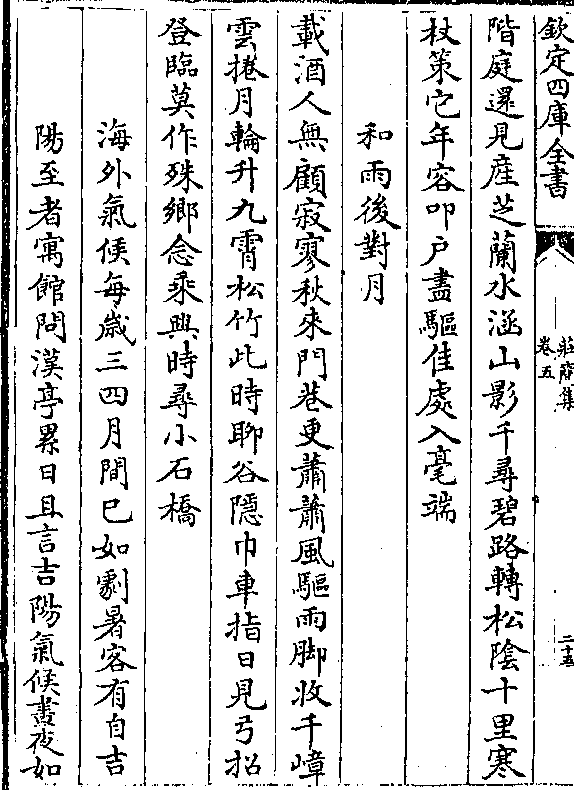 欽定四庫全書
莊簡集
卷五
二十五
階庭還見産芝蘭水涵山影千尋碧路轉松陰十里寒
杖策它年容叩户盡驅佳處入毫端
和雨後對月
載酒人無顧寂寥秋來門巷更蕭蕭風驅雨脚收千嶂
雲捲月輪升九霄松竹此時聊谷隱巾車指日見弓招
登臨莫作殊鄉念乘興時尋小石橋
海外氣候每歳三四月間已如劇暑客有自吉
陽至者寓館問漢亭累日且言吉陽氣候晝夜如